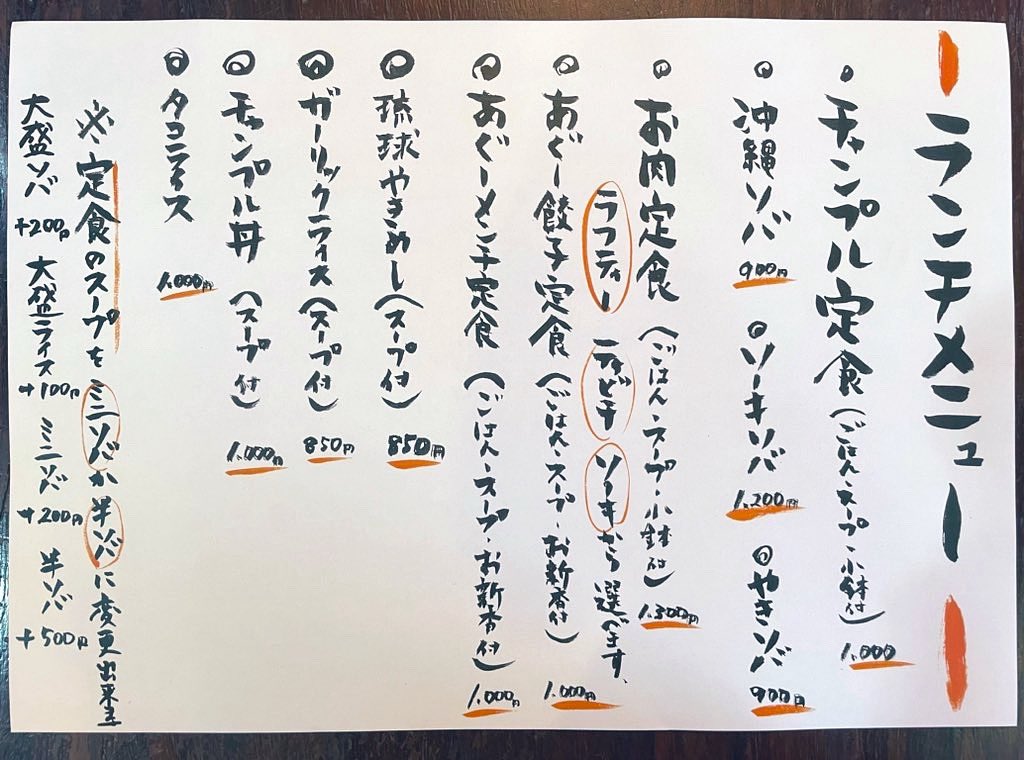 ランチメニュー
◎チャンプル定食(ごはん・スープ・小鉢付) 1,000
◎沖縄ソバ 900円 ◎ソーキソバ 1,200円 ◎やきソバ 900円
◎お肉定食(ごはん・スープ・小鉢付) 1,300円
ラフティー てびチ ソーキから選べます、
◎あぐー餃子定食(ごはん・スープ・お新香付) 1,000円
◎あぐーメンチ定食(ごはん・スープ・お新香付) 1,000円
◎琉球やきめし(スープ付) 850円
◎ガーリックライス(スープ付) 850円
◎チャンプル丼(スープ付) 1,000円
◎タコライス 1,000円
※定食のスープをミニソバか半ソバに変更出来ます
大盛ソバ +200円 大盛ライス +100円 ミニソバ +200円 半ソバ +500円